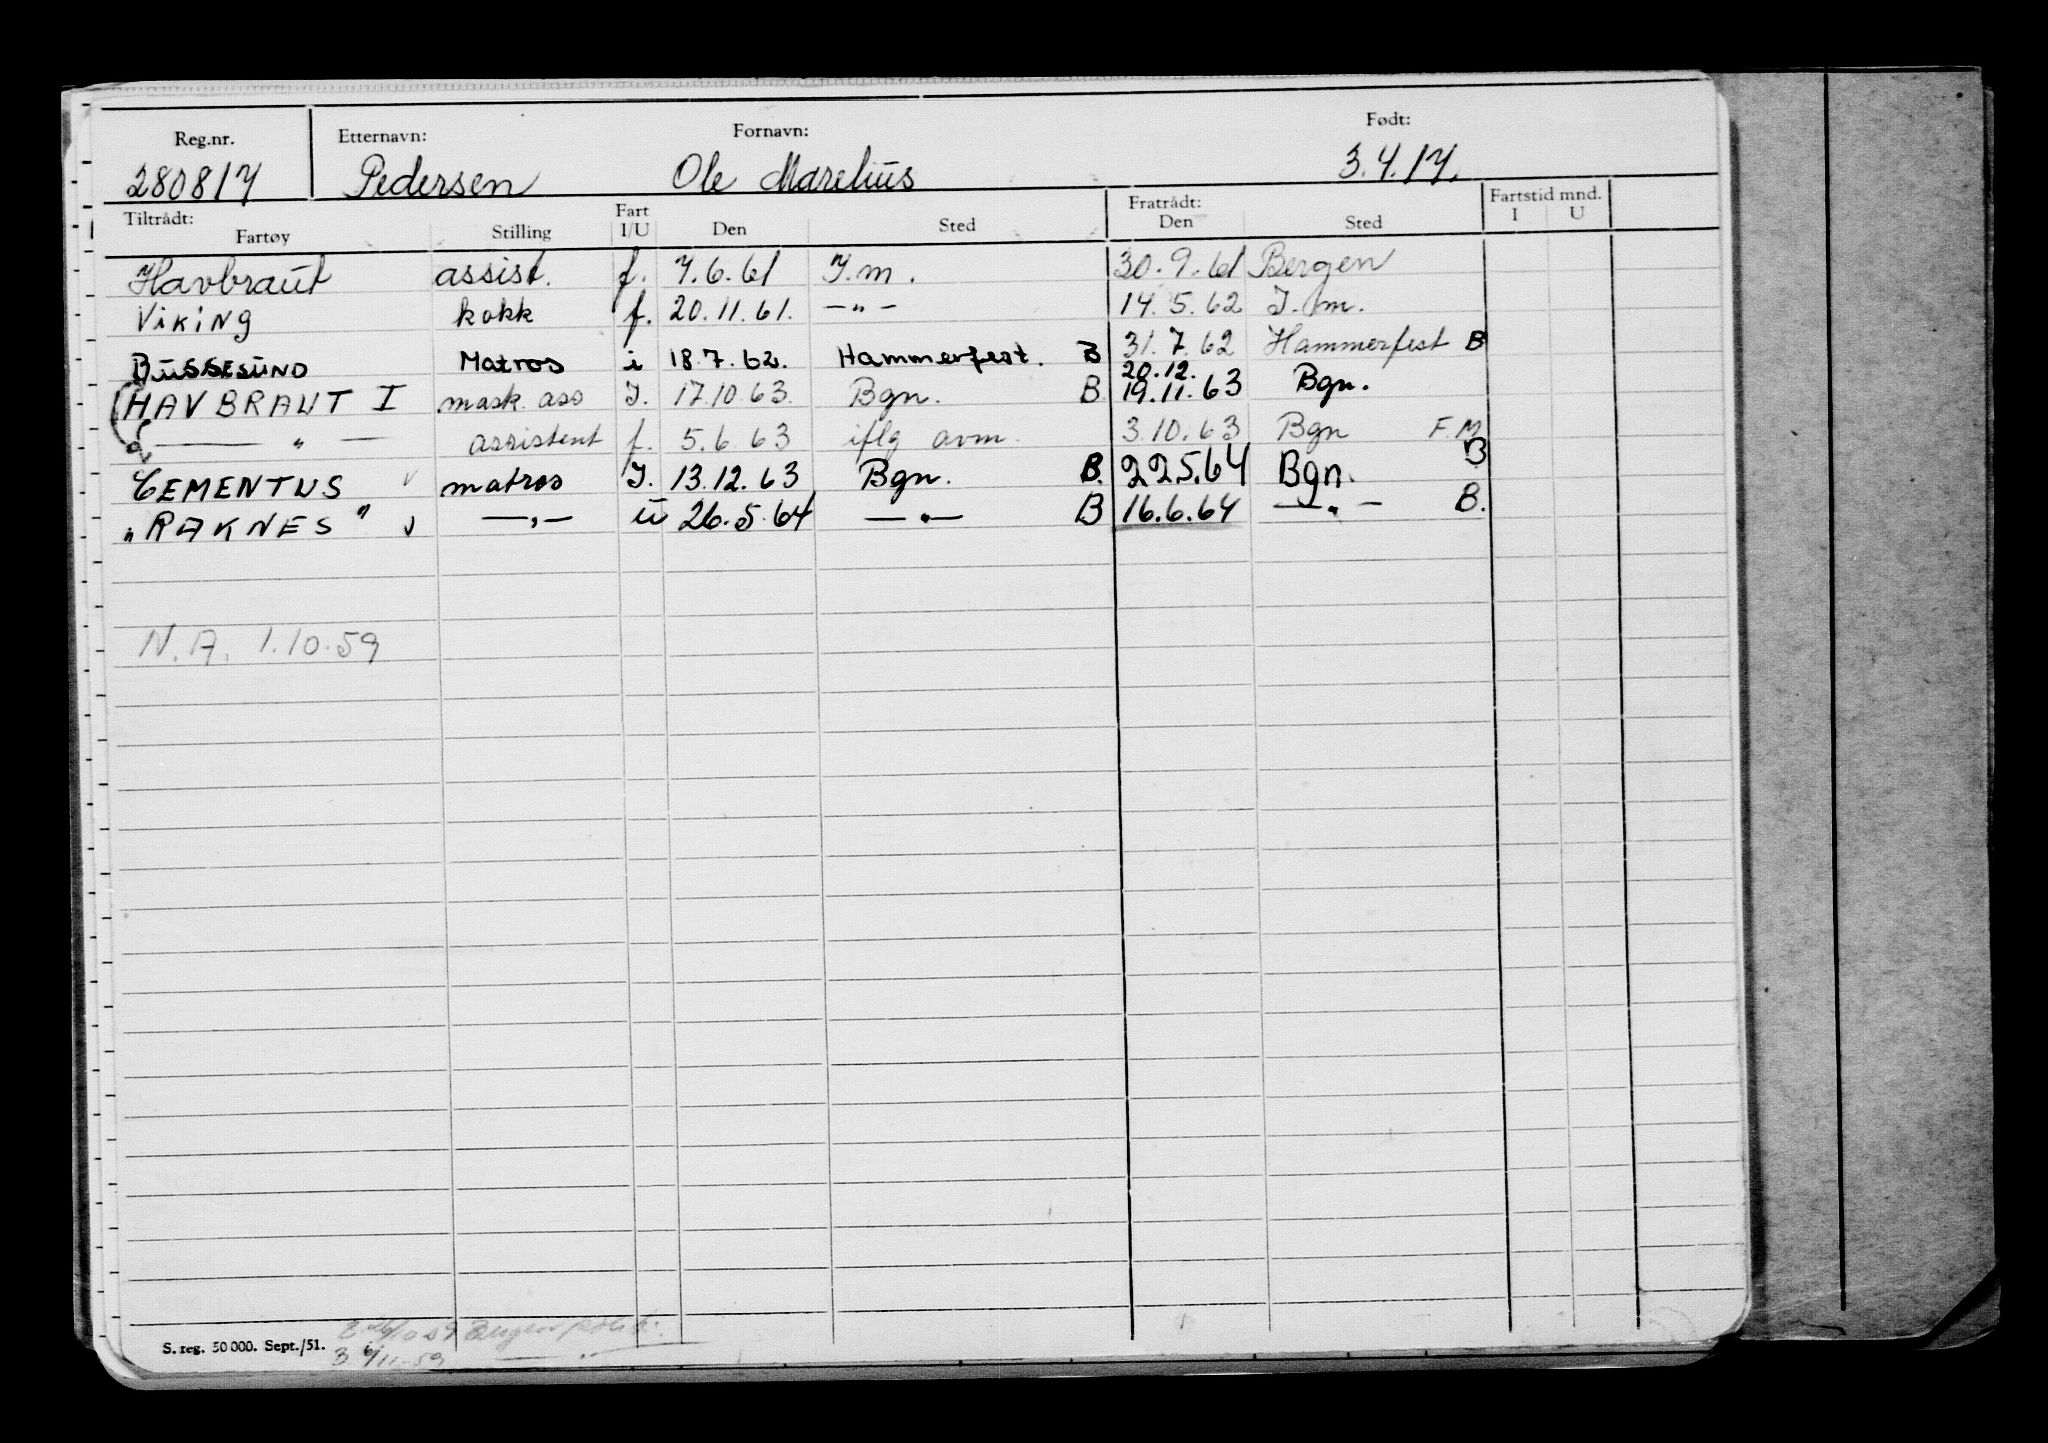 Reg.nr. Etternavn: Fornavn: Født:
280817 Pedersen Ole Marelius 3.4.17.
Tiltrådt: Fratrådt: Fartstid mnd.
Fartøy Stilling Fart I/U Den Sted Den Sted I U
Havbraut assist. f. 7.6.61 I.m. 30.9.61 Bergen
Viking kokk f. 20.11.61. —"— 14.5.62 I.m.
BUSSESUND Matros i 18.7.62. Hammerfest. B 31.7.62 Hammerfest B
20.12.
HAVBRAUT I mask. ass I. 17.10.63. Bgn. B 19.11.63 Bgn.
—— " — assistent f. 5.6.63 iflg avm. 3.10.63 Bgn F.M
CEMENTUS v matros I. 13.12.63 Bgn. B. 22.5.64 Bgn. B
"RAKNES" v —"— U 26.5.64 —"— B 16.6.64 —"— B.
N.A. 1.10.59
S. reg. 50 000. Sept./51.
3 6/11-59 — " —